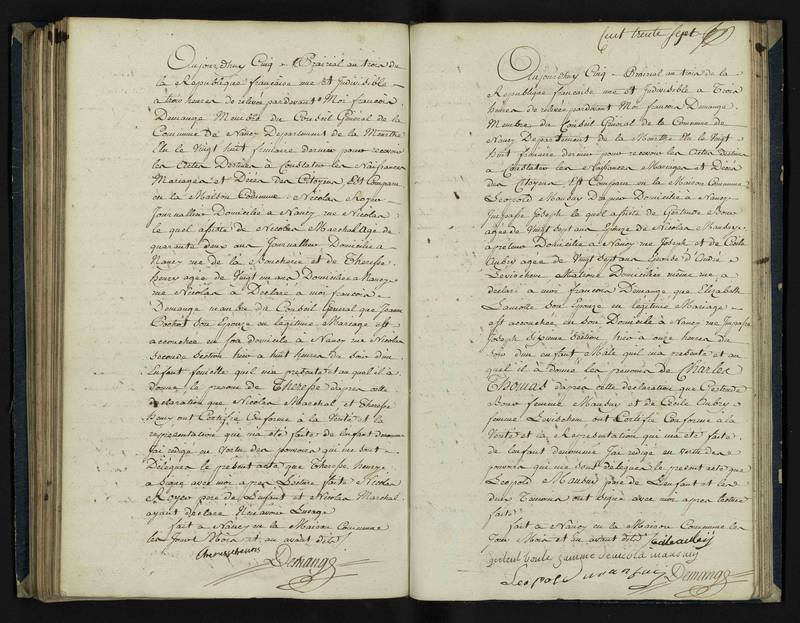 Aujourdhuy Cinq Prairial an trois de
la Republique francaise une et Indivisible
a trois heures de relevée pardevant Moi francois
Demange Membre du Conseil Général de la
Commune De Nancy Departement de la Meurthe
Elu le Vingt huit frimaire dernier pour recevoir
les Actes Destinés à Constater les Naissances
Mariages et Décès des Citoyens, Est Comparu
en la Maison Commune Nicolas Royer
Journallier Domicilié a Nancy rue Nicolas
le quel assisté de Nicolas Marechal Agé de
quarante deux ans Journallier Domicilié a
Nancy rue de la Boucherie et de Therese
henry agée de Vingt un ans Domiciliée a Nancy
rue Nicolas à Déclaré a moi francois
Demange membre du Conseil General que Jeanne
son Epouse en légitime Mariage est
accouchée en son domicile a Nancy rue Nicolas
seconde section hier a huit heures du soir d'un
Enfant femelle quil ma présenté et au quel il à
donné le prenom de Therese dapres cette
declaration que Nicolas Marechal et Therese
henry ont Certifié Conforme à la Verité et la
représentation qui ma été faite de lenfant denommé
Jai redigé en Vertu des pouvoirs qui me sont
Délégués le présent acte que Therese henry
a signé avec moi apres Lecture faite Nicolas
Royer père de Lenfant et Nicolas Marechal
ayant déclaré
fait a Nancy en la Maison Commune
les Jour Mois et an avant dits
Demange
Cent trente sept
Aujourdhuy Cinq Prairial an trois de la
Republique francaise une et Indivisible a Trois
heures de relevée pardevant Moi francois Demange
Membre du Conseil Général de la Commune de
Nancy Departement de la Meurthe Elu le Vingt
huit frimaire dernier pour recevoir les Actes destinés
a Constater les Naissances Mariages et Décès
des Citoyens Est Comparu en la Maison Commune
Leopold Domicilié a Nancy
Joseph le quel assisté de Gertrude
agée de Vingt sept ans Epouse de Nicolas
Domicilié a Nancy rue Joseph et de Cécile
Aubry agée de Vingt sept ans Epouse d'André
Domiciliée même rue a
declaré a moi francois Demange que Elizabeth
son Epouse en legitime Mariage
est accouchée en son Domicile à Nancy rue
Joseph Septieme Section hier a onze heures du
soir d'un enfant Male quil ma presenté et au
quel il à donné les prenoms de Charles
Thomas dapres cette declaration que Gertrude
femme et de Cécile Aubry
femme ont Certifié Conforme à la
Verité et la Representation qui ma été faite
de lenfant denommé jai rédigé en vertu des
pouvoirs qui me sont délégués le présent acte que
Leopold père de Lenfant et les
deux Temoins ont signé avec moi apres lecture
faite
fait à Nancy en la Maison Commune les
Jour Mois et an avant dits
Demange